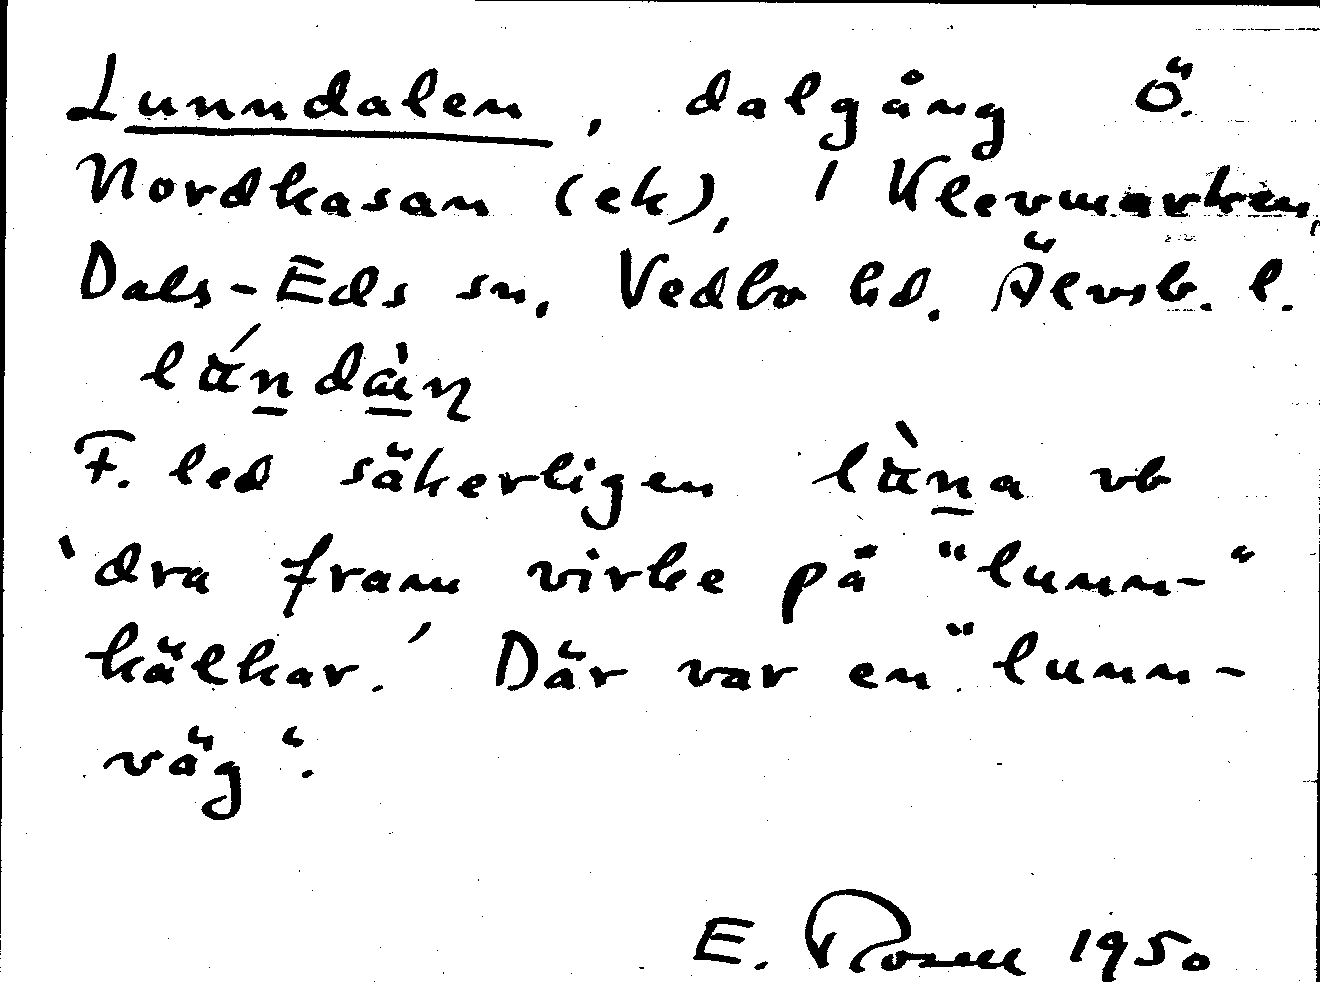 Lunndalen, dalgång Ö.
Nordkasan (ek), 1 Klevmarken,
Dals-Eds sn, Vedbo hd. Älvsb. l.
F. led säkerligen vb
'dra fram virke på "lunn-"
kälkar.' Där var en "lunn-
väg".
E. Rosell 1950